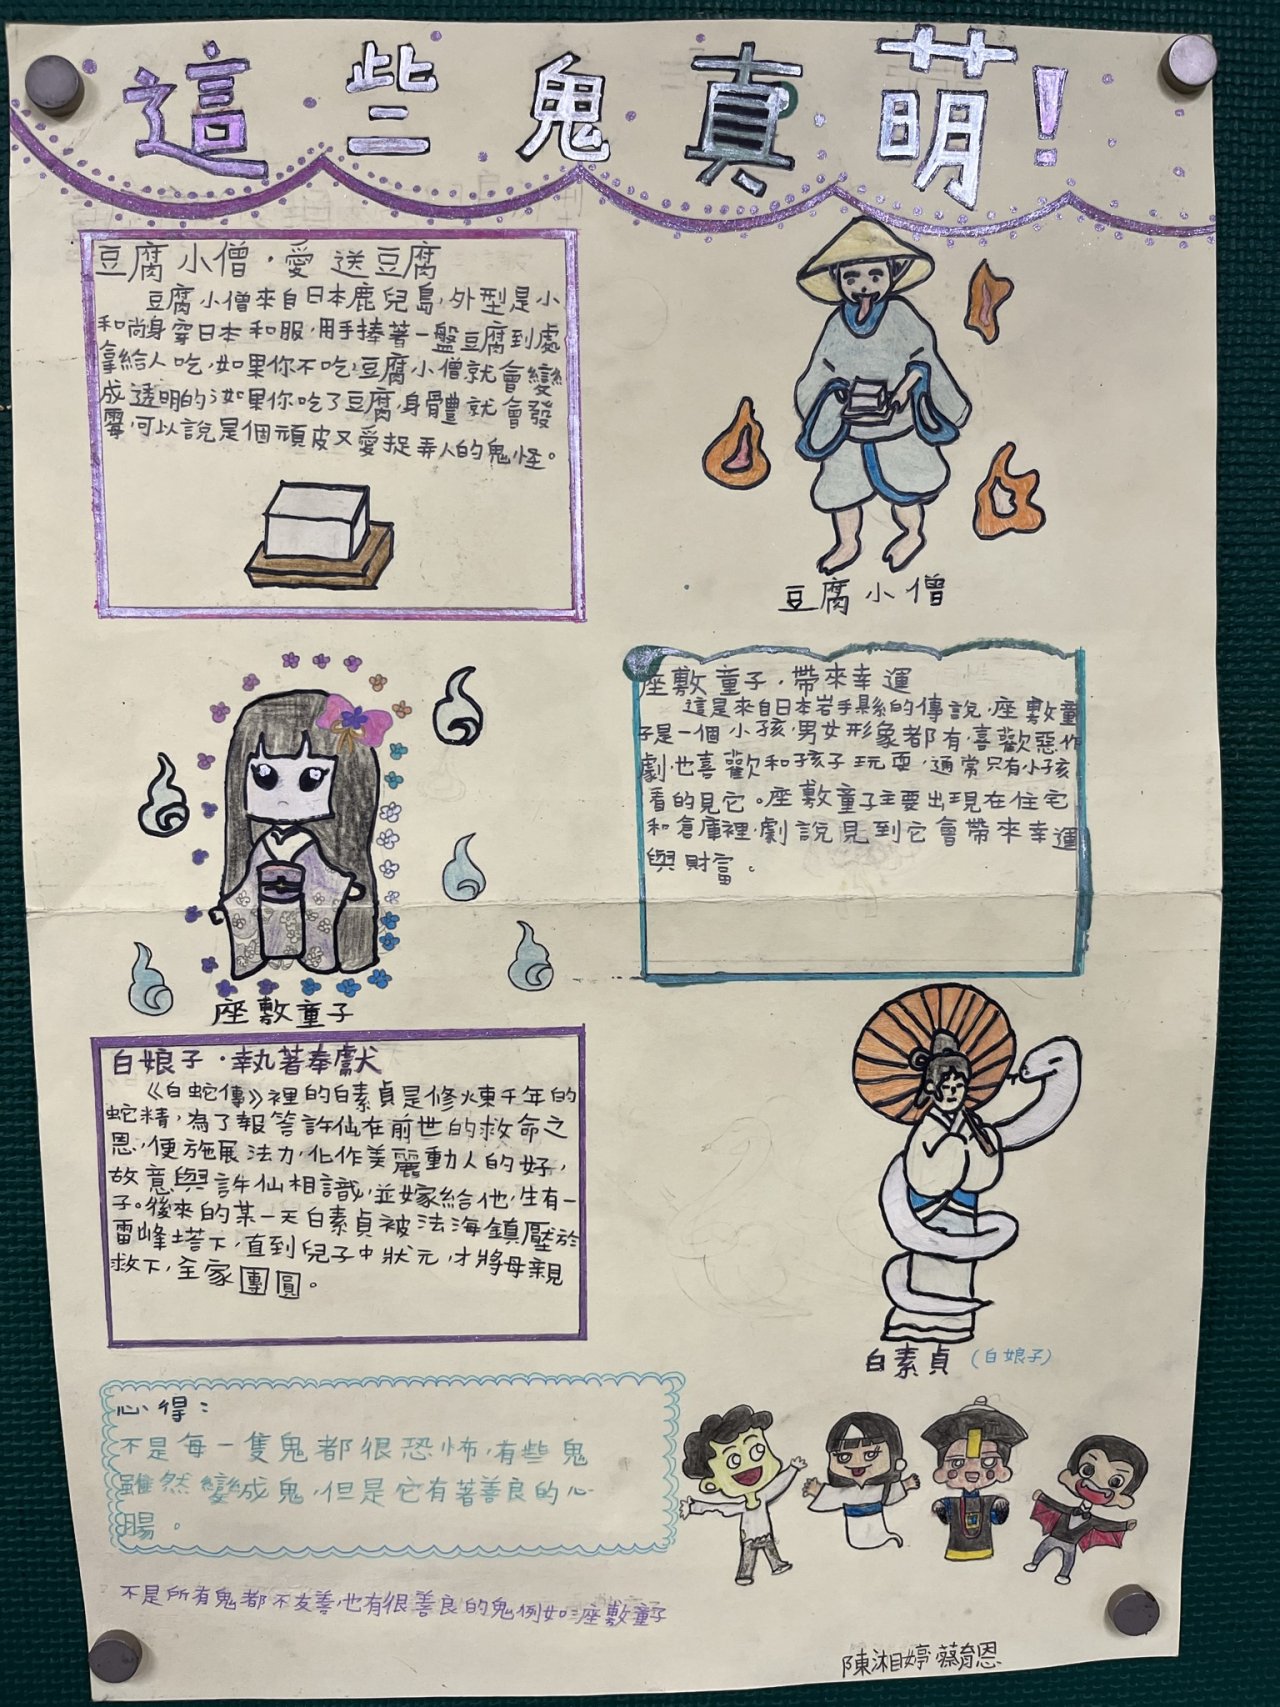 這些鬼真萌!
豆腐小僧·愛送豆腐
豆腐小僧來自日本鹿兒島,外型是小
和尚身穿日本和服,用手捧著一盤豆腐到處
拿給人吃,如果你不吃,豆腐小僧就會變
成透明的;如果你吃了豆腐,身體就會發
霉,可以說是個頑皮又愛捉弄人的鬼怪。
豆腐小僧
座敷童子·帶來幸運
這是來自日本岩手縣的傳說,座敷童
子是一個小孩,男女形象都有,喜歡惡作
劇,也喜歡和孩子玩耍,通常只有小孩
看的見它。座敷童子主要出現在住宅
和倉庫裡,劇說見到它會帶來幸運
與財富。
座敷童子
白娘子·執著奉獻
《白蛇傳》裡的白素貞是修煉千年的
蛇精,為了報答許仙在前世的救命之
恩,便施展法力,化作美麗動人的好,
故意與許仙相識,並嫁給他,生有一
子。後來的某一天白素貞被法海鎮壓於
雷峰塔下,直到兒子中狀元,才將母親
救下,全家團圓。
白素貞(白娘子)
心得:
不是每一隻鬼都很恐怖,有些鬼
雖然變成鬼,但是它有著善良的心
腸。
不是所有鬼都不友善,也有很善良的鬼例如:座敷童子
陳湘婷 蔡育恩